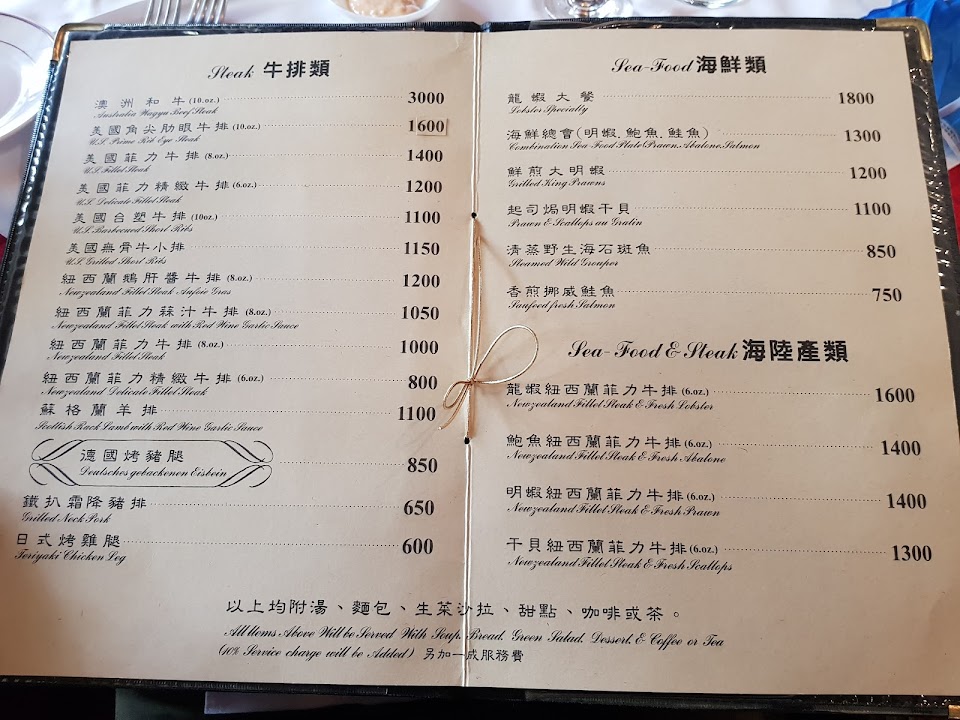 Steak 牛排類
澳洲和牛(10.oz.) 3000
Australia Wagyu Beef Steak
美國角尖肋眼牛排(10.oz.) 1600
U.S. Prime Rib Eye Steak
美國菲力牛排(8.oz.) 1400
U.S. Fillet Steak
美國菲力精緻牛排(6.oz.) 1200
U.S. Delicate Fillet Steak
美國台塑牛排(10oz.) 1100
U.S. Barbecued Short Ribs
美國無骨牛小排 1150
U.S. Grilled Short Ribs
紐西蘭鵝肝醬牛排(8.oz.) 1200
Newzealand Fillet Steak Aufoie Gras
紐西蘭菲力蒜汁牛排(8.oz.) 1050
Newzealand Fillet Steak with Red Wine Garlic Sauce
紐西蘭菲力牛排(8.oz.) 1000
Newzealand Fillet Steak
紐西蘭菲力精緻牛排(6.oz.) 800
Newzealand Delicate Fillet Steak
蘇格蘭羊排 1100
Scottish Rack Lamb with Red Wine Garlic Sauce
德國烤豬腿 850
Deutsches gebackenen Eisbein
鐵扒霜降豬排 650
Grilled Neck Pork
日式烤雞腿 600
Teriyaki Chicken Leg
Sea-Food 海鮮類
龍蝦大餐 1800
Lobster Specialty
海鮮總會(明蝦.鮑魚.鮭魚) 1300
Combination Sea-Food Plate(Prawn.Abalone.Salmon
鮮煎大明蝦 1200
Grilled King Prawns
起司焗明蝦干貝 1100
Prawn & Scallops au Gratin
清蒸野生海石斑魚 850
Steamed Wild Grouper
香煎挪威鮭魚 750
Saufeed fresh Salmon
Sea-Food & Steak 海陸產類
龍蝦紐西蘭菲力牛排(6.oz.) 1600
Newzealand Fillet Steak & Fresh Lobster
鮑魚紐西蘭菲力牛排(6.oz.) 1400
Newzealand Fillet Steak & Fresh Abalone
明蝦紐西蘭菲力牛排(6.oz.) 1400
Newzealand Fillet Steak & Fresh Prawn
干貝紐西蘭菲力牛排(6.oz.) 1300
Newzealand Fillet Steak & Fresh Scallops
以上均附湯、麵包、生菜沙拉、甜點、咖啡或茶。
All Items Above Will be Served With Soup. Bread. Green Salad. Dessert. & Coffee or Tea
(10% Service charge will be Added) 另加一成服務費